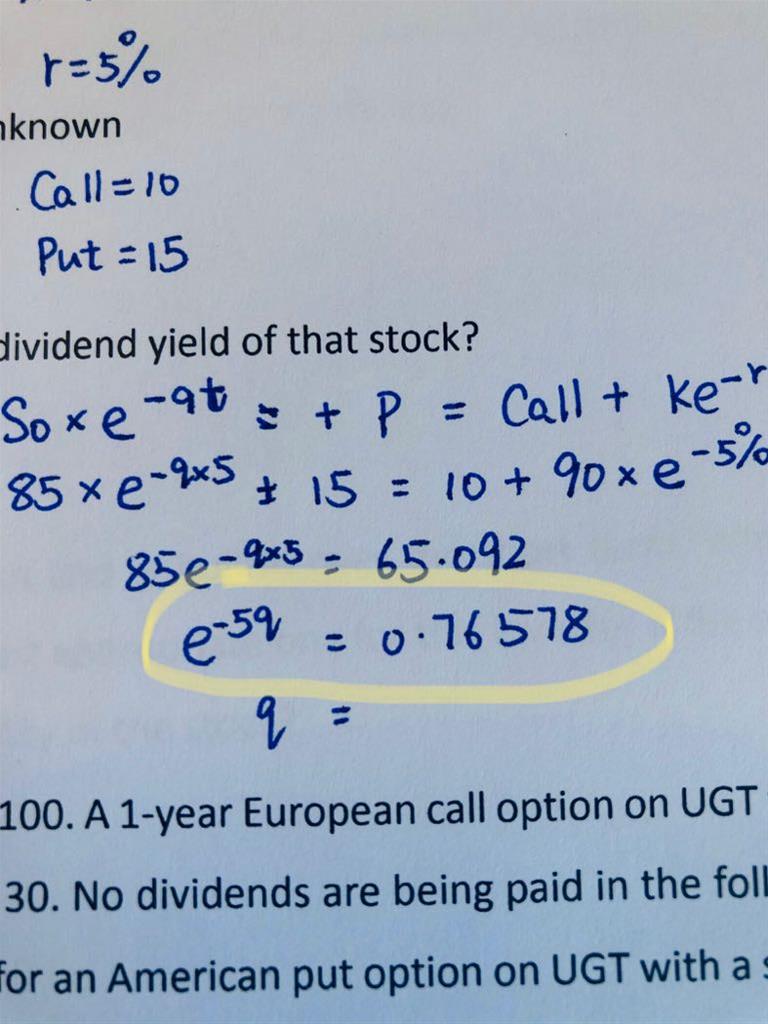 r=5%
nknown
Call=10
Put =15
dividend yield of that stock?
So × e^-qt = + P = Call + ke^-r
85 × e^-q×5 + 15 = 10 + 90 × e^-5%
85e^-q×5 = 65.092
e^-5q = 0.76578
q =
100. A 1-year European call option on UGT
30. No dividends are being paid in the foll
for an American put option on UGT with a s